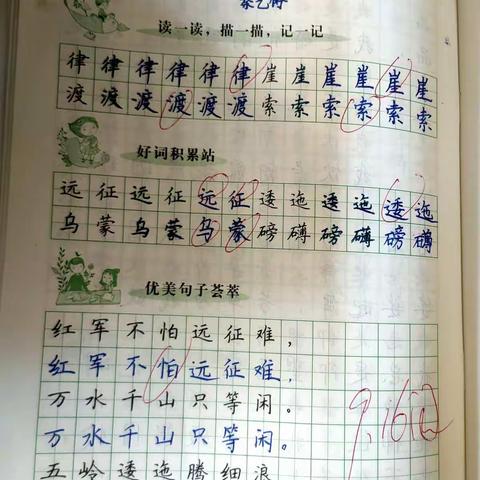 读一读，描一描，记一记
律律律律律律崖崖崖崖崖崖
渡渡渡渡渡渡索索索索索索
好词积累站
远征远征远征逶迤逶迤逶迤
乌蒙乌蒙乌蒙磅礴磅礴磅礴
优美句子荟萃
红军不怕远征难，
红军不怕远征难，
万水千山只等闲。
万水千山只等闲。
五岭逶迤腾细浪
9.16